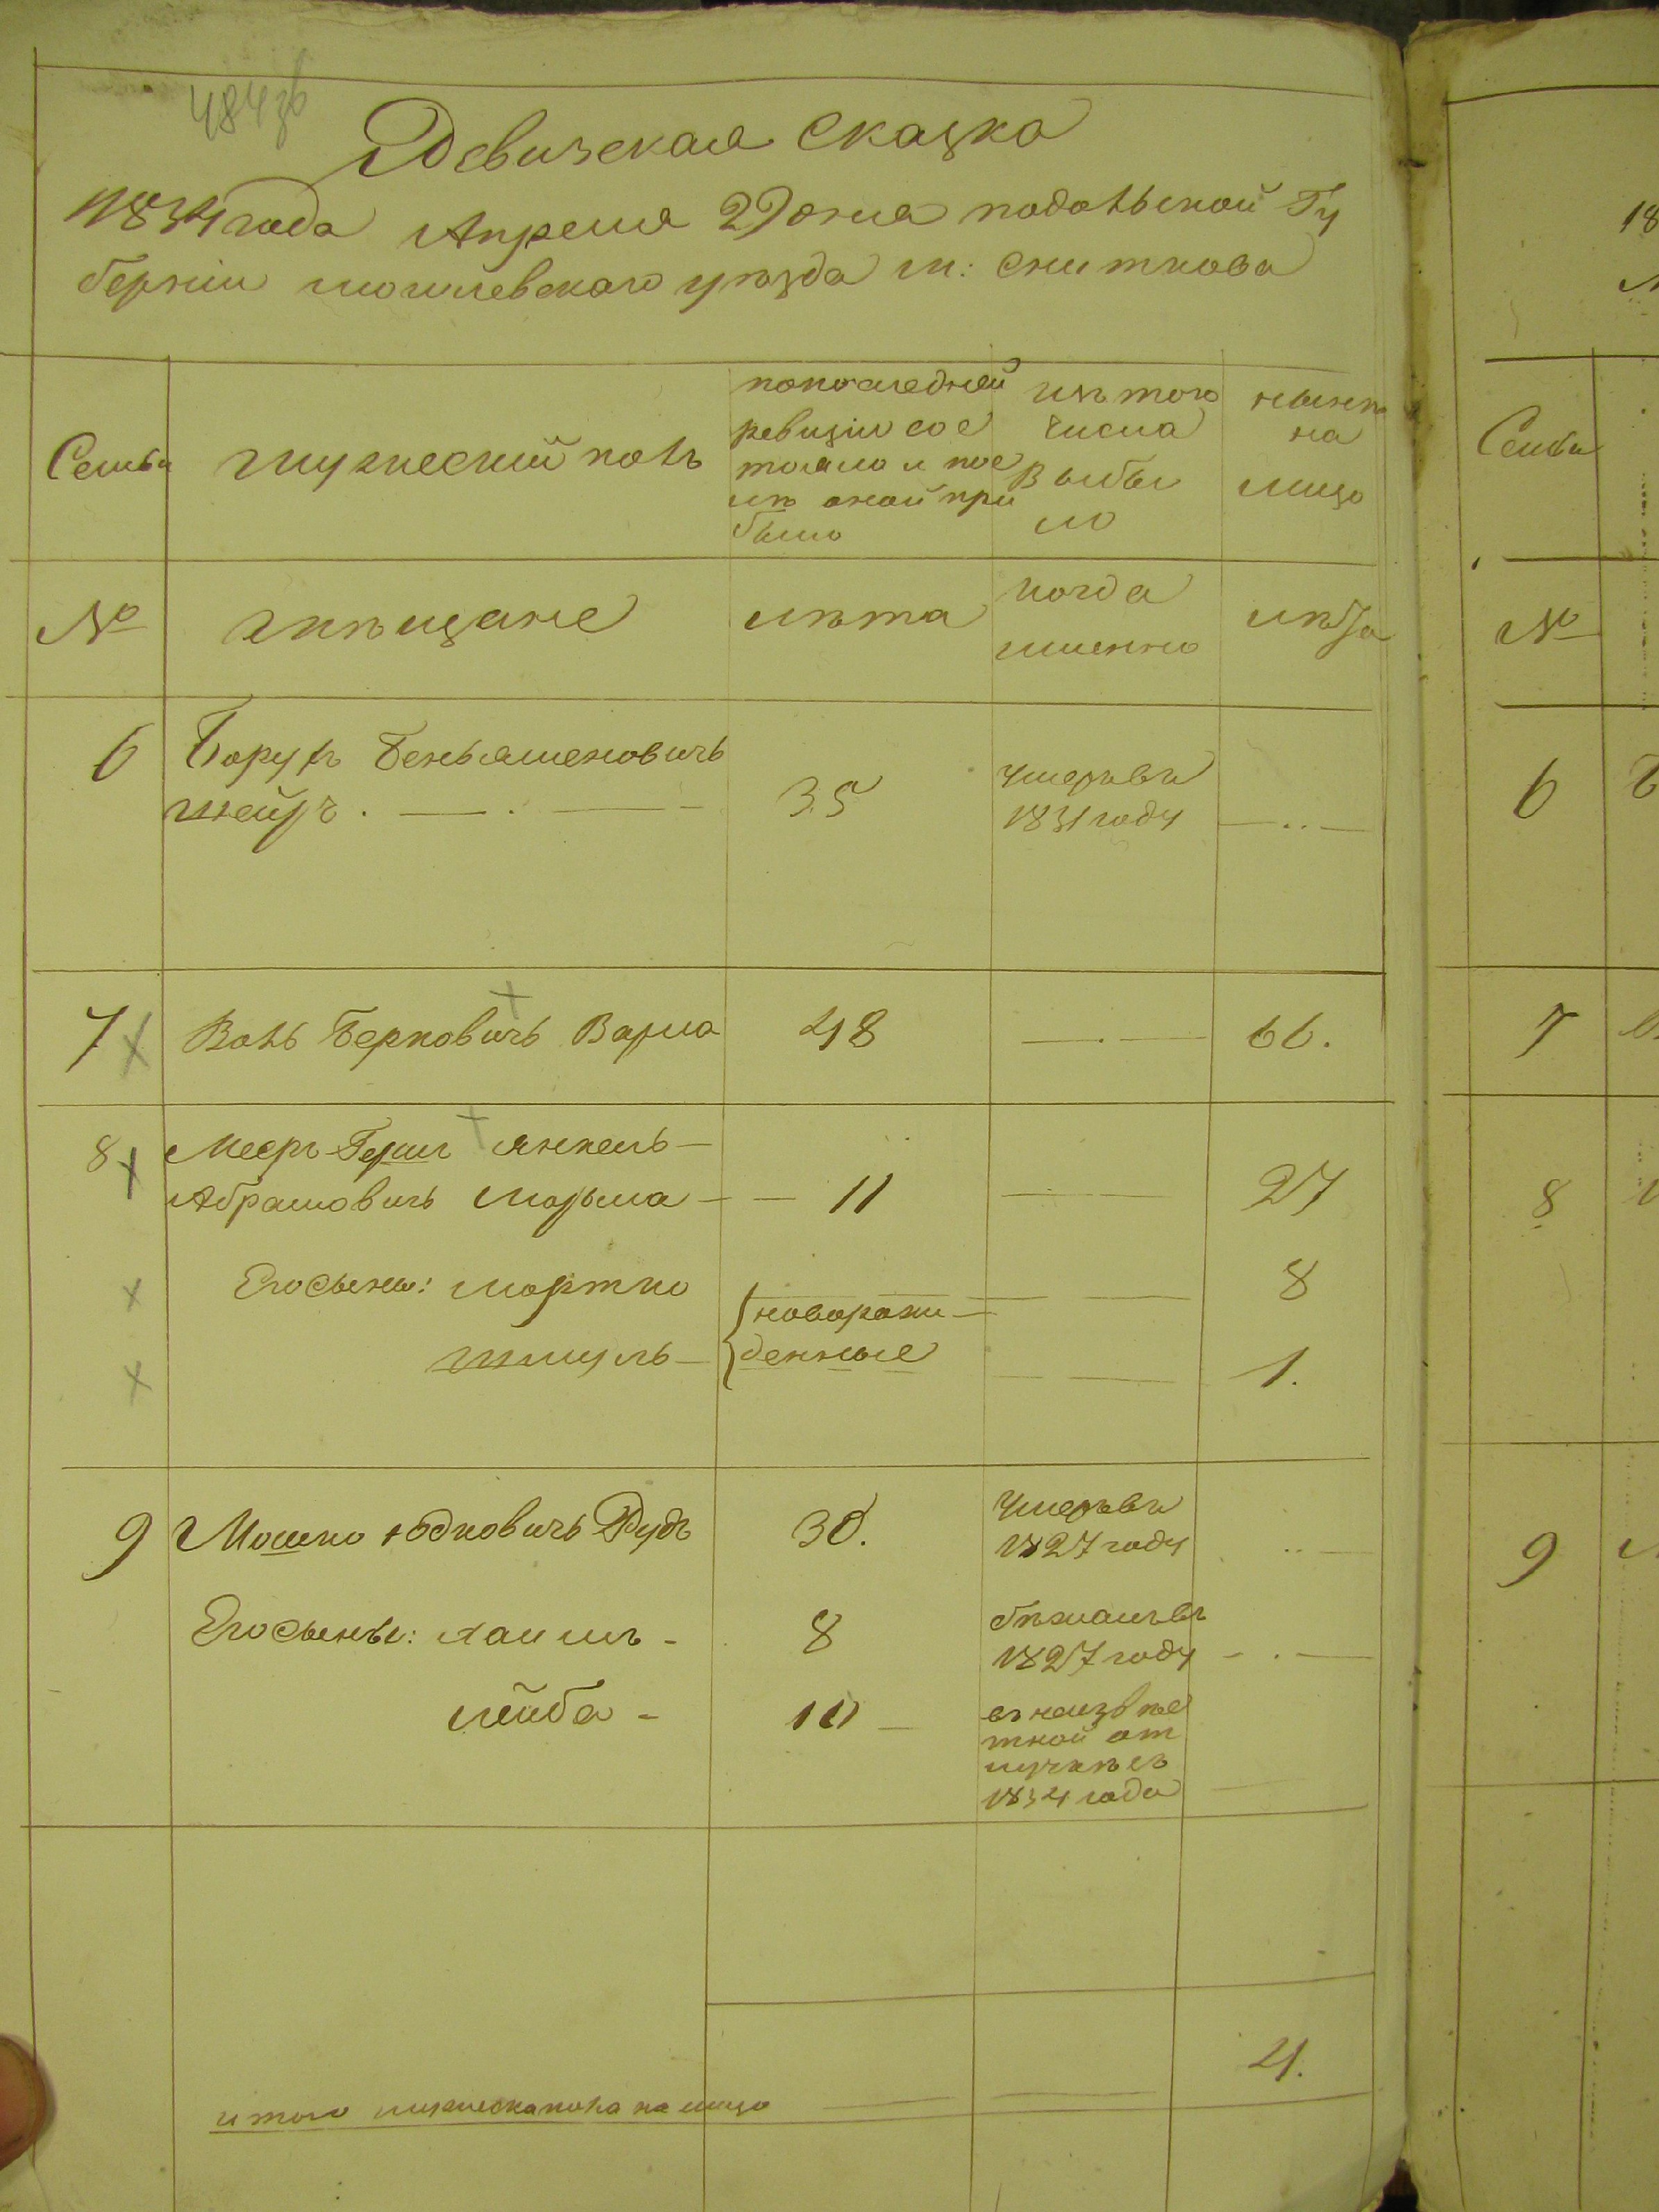 484зв
Ревизская Сказка
1834 года Апреля 29 дня подольской Гу
бернiи могилевскаго уѣзда м: Сниткова
Семьи
мужеский полъ
попоследней
ревизiи сос
тояло и пос
лѣ оной при
было
изъ того
числа
выбы
ло
нынѣ
на
лицо
№
мѣщане
лѣта
когда
именно
лѣта
6 Борухъ Беньяменовичъ
Мейръ 35 умеръ въ
1831 году
7 Воль Берковичъ Варма 48 66.
8 Мееръ Гершъ янкель
Абрамовичъ 11 27
Его Сыны: мортко 8
новорожи
Шмуль денные 1.
9 Мошко юдковичъ Рудъ 30. Умеръ въ
1827 году
Его Сыны: хаимъ 8 бѣжалъ въ
1827 году
лейба 10 въ неизвѣс
тной от
лучкѣ съ
1834 года
4.
итого мужеска пола на лицо
18
Семьи
№
6
7
8
9